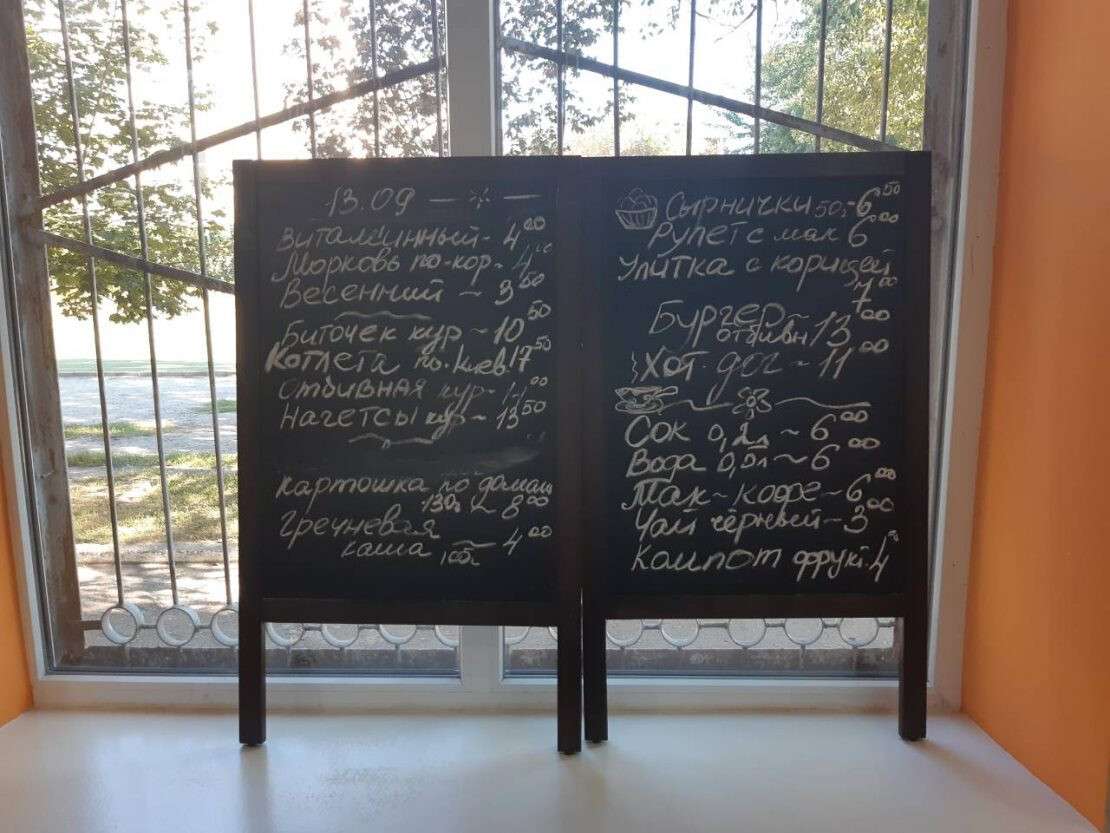 13.09
Витаминный - 4 00
Морковь по-кор - 4
Весенний ~ 3 50
Биточек кур ~ 10 50
Котлета по. Киев 17 50
Отбивная кур -
Нагетсы кур ~ 13 50
картошка по домаш
130г ~ 8 00
Гречневая
каша 100г ~ 4 00
Сырнички 50г - 6 50
Рулет с мак 6 00
Улитка с корицей
7 00
Бургер ~
отбивн 13 00
Хот-дог ~ 11 00
Сок 0,2л ~ 6 00
Вода 0,5л ~ 6 00
Мак-кофе ~ 6 00
Чай чёрный ~ 3 00
Компот фрукт. 4